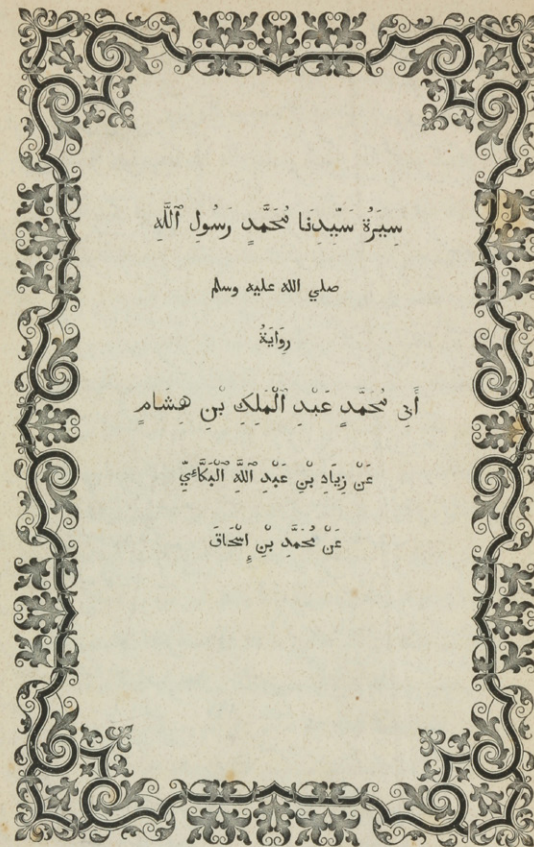 سِيرَةُ سَيِّدِنَا مُحَمَّدٍ رَسُولِ ٱللَّهِ
صلي الله عليه وسلم
رِوَايَةُ
أَبِي مُحَمَّدٍ عَبْدِ ٱلْمَلِكِ بْنِ هِشَامٍ
عَنْ زِيَادِ بْنِ عَبْدِ ٱللَّهِ ٱلْبَكَّائِيِّ
عَنْ مُحَمَّدِ بْنِ إِسْحَاقَ